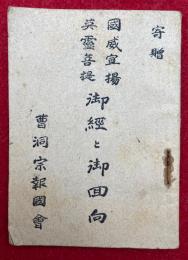 寄贈
國威宣揚
英靈菩提
御經と御回向
曹洞宗報國會